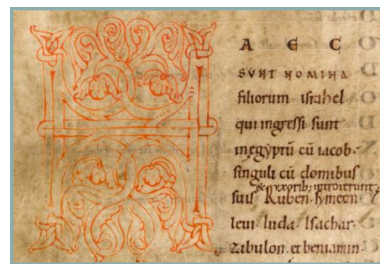 HAEC
SUNT NOMINA
filiorum israhel
qui ingressi sunt
in egyptū cū iacob.
singuli cū domibus
& uxorib; introierunt.
suis Ruben. symeon
leui iuda Isachar.
zabulon. et beniamin.